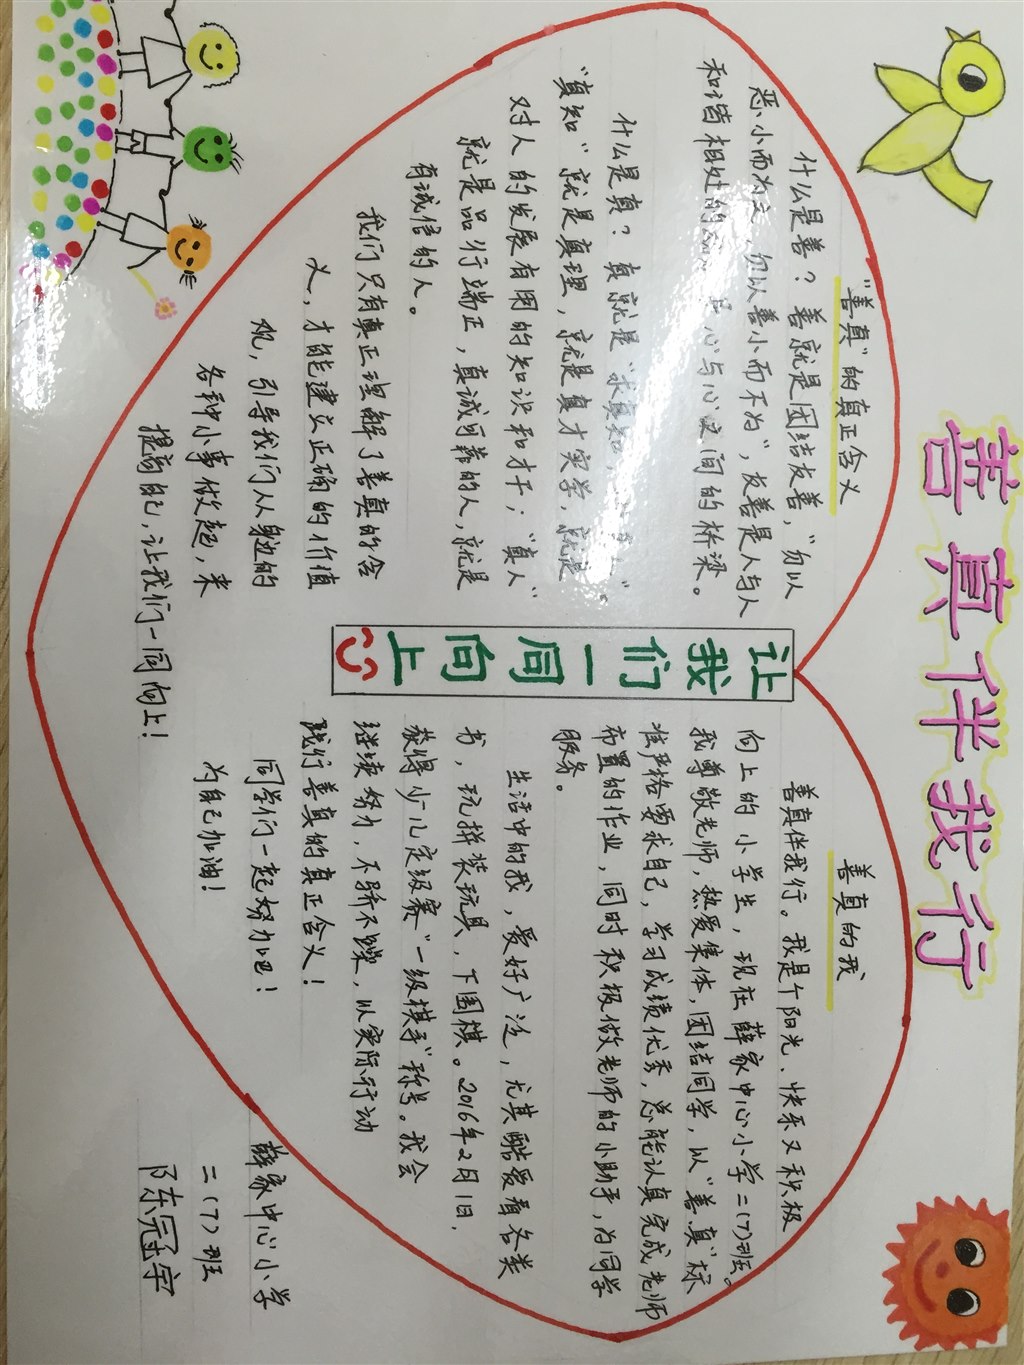 善真伴我行
"善真"的真正含义
什么是善？善就是团结友善，"勿以
恶小而为之，勿以善小而不为"，友善是人与人
和谐相处的 心与心之间的桥梁。
什么是真？真就是"求真知，
"真知"就是真理，就是真才实学，就是
对人的发展有用的知识和才干；"真人"
就是品行端正，真诚可靠的人，就是
有诚信的人。
我们只有真正理解了善真的含
义，才能建立正确的价值
观，引导我们从身边的
各种小事做起，来
提高自己，让我们一同向上！
让我们一同向上
善真的我
善真伴我行。我是个阳光、快乐又积极
向上的小学生，现在薛家中心小学二(7)班。
我尊敬老师，热爱集体，团结同学，以"善真"标
准严格要求自己，学习成绩优秀，总能认真完成老师
布置的作业，同时积极做老师的小助手，为同学
服务。
生活中的我，爱好广泛，尤其酷爱看各类
书，玩拼装玩具，下围棋。2016年2月1日，
获得少儿定级赛"一级棋手"称号。我会
继续努力，不骄不躁，以实际行动
践行善真的真正含义！
同学们一起努力吧！
为自己加油！
薛家中心小学
二(7)班
陈冠宇